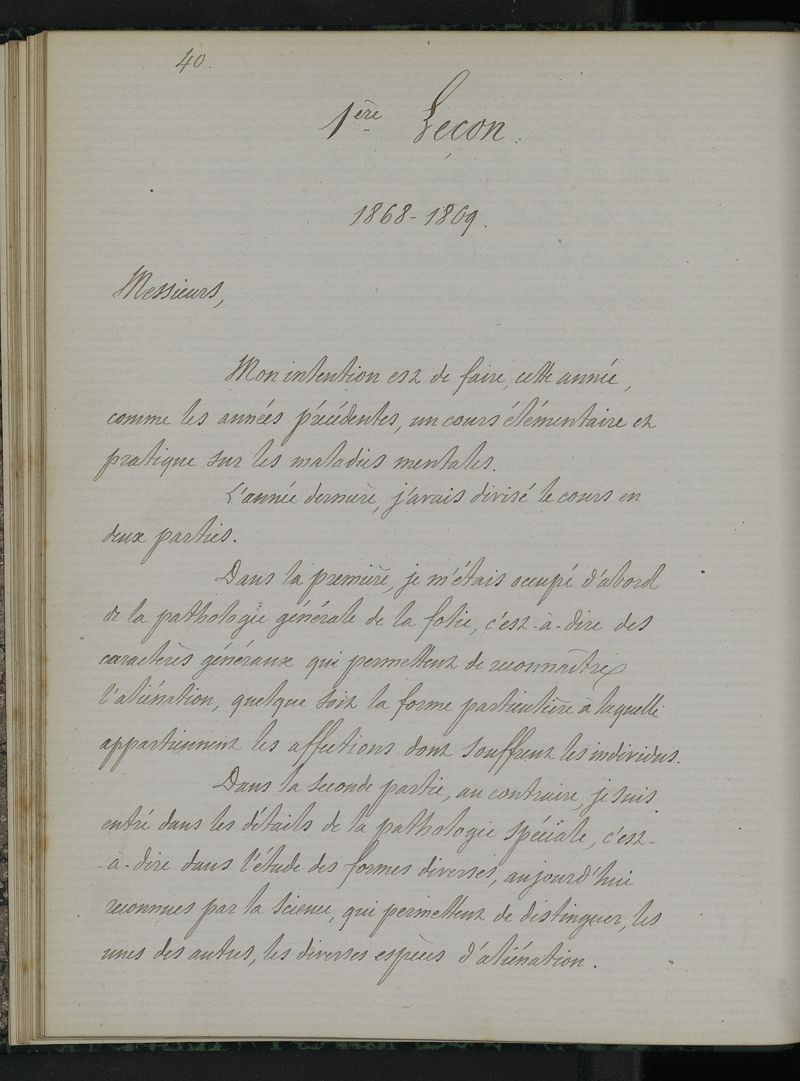 40.
1ère Leçon.
1868-1869.
Messieurs,
Mon intention est de faire, cette année,
comme les années précédentes, un cours élémentaire et
pratique sur les maladies mentales.
L'année dernière, j'avais divisé le cours en
deux parties.
Dans la première, je m'étais occupé d'abord
de la pathologie générale de la folie, c'est-à-dire des
caractères généraux qui permettent de reconnaître
l'aliénation, quelque soit la forme particulière à laquelle
appartiennent les affections dont souffrent les individus.
Dans la seconde partie, au contraire, je suis
entré dans les détails de la pathologie spéciale, c'est-
-à-dire dans l'étude des formes diverses, aujourd'hui
reconnues par la science, qui permettent de distinguer, les
unes des autres, les diverses espèces d'aliénation.